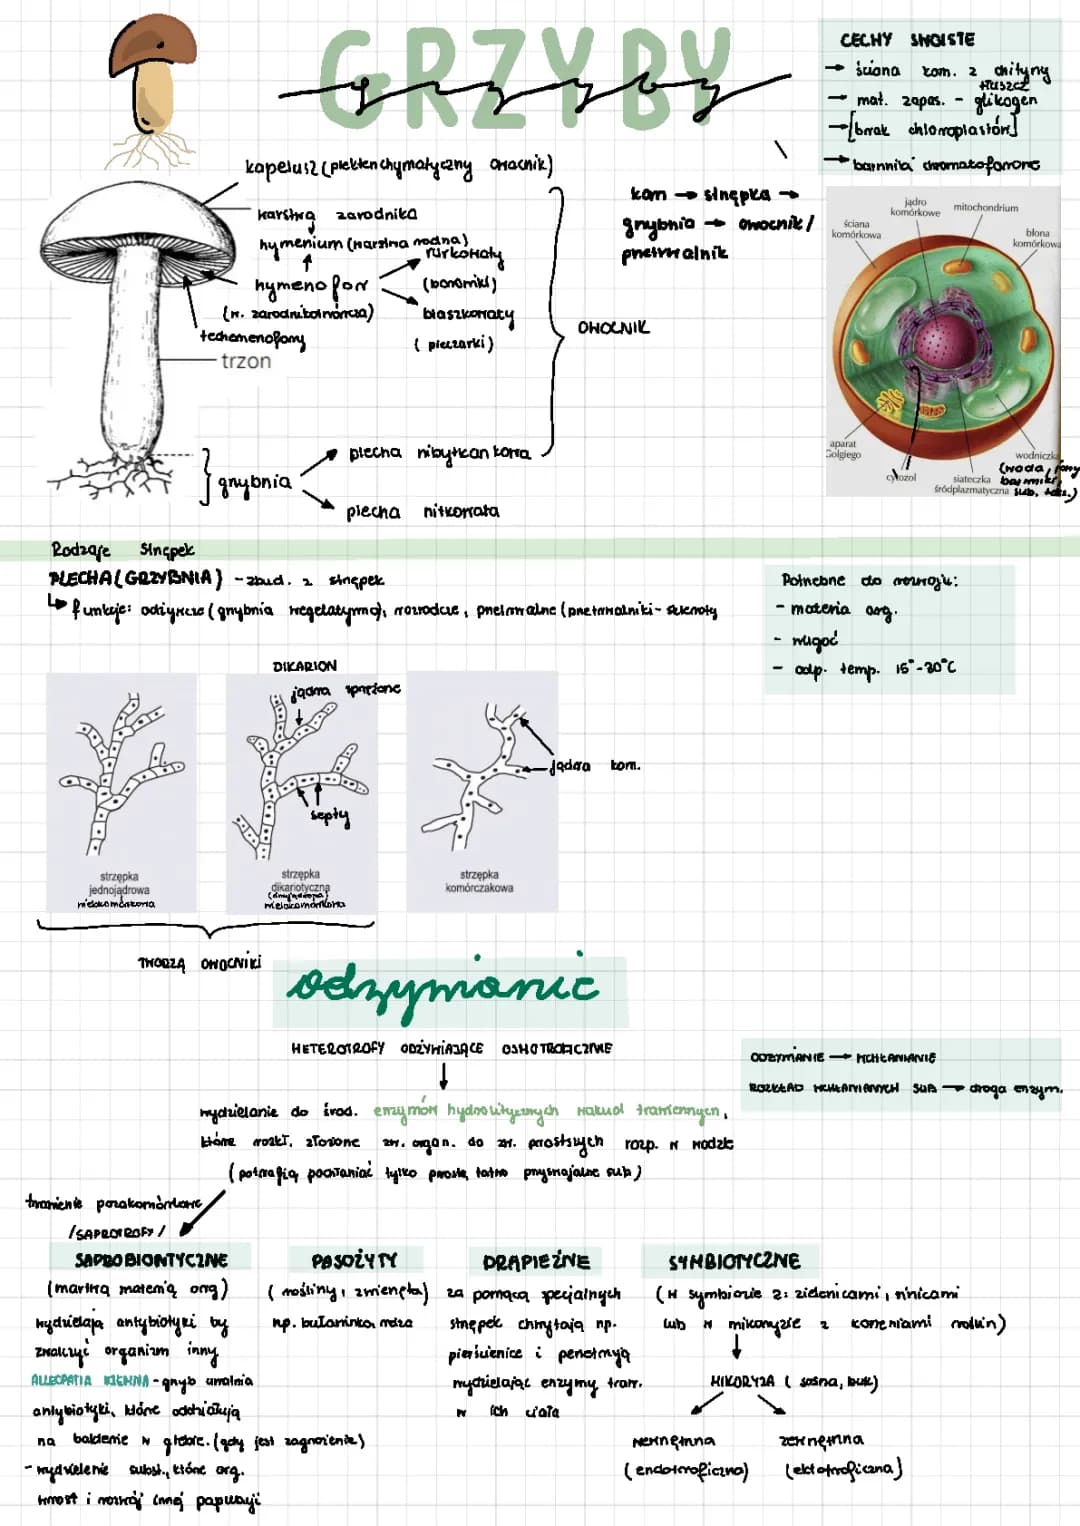 GRZYBY
grzyby
CECHY SWOISTE
→ ściana kom. z chityny
tłuszcz
→ mat. zapas. - glikogen
→ [brak chloroplastów]
→ barwniki chromatoforowe
kapelusz (plektenchymatyczny owocnik)
warstwa zarodnika
hymenium (warstwa rodna)
hymenofor
(w. zarodnikotwórcza)
rurkowaty
(borowiki)
blaszkowaty
(pieczarki)
trzon
OWOCNIK
kom → strzępka →
grzybnia → owocnik/
przetrwalnik
ściana komórkowa
jądro komórkowe
mitochondrium
błona komórkowa
aparat Golgiego
cytozol
siateczka śródplazmatyczna
wodniczka
(woda, jony
barwniki,
sub. toks.)
grzybnia
plecha nibytkankowa
plecha nitkowata
Rodzaje strzępek
PLECHA (GRZYBNIA) - zbud. z strzępek
↳ funkcje: odżywcze (grzybnia wegetatywna), rozrodcze, przetrwalne (przetrwalniki - skleroty
Potrzebne do rozwoju:
- materia org.
- wilgoć
- odp. temp. 15°-30°C
DIKARION
jądra sprzężone
septy
jądra kom.
strzępka
jednojądrowa
wielokomórkowa
strzępka
dikariotyczna
(dwujądrowa)
wielokomórkowa
strzępka
komórczakowa
TWORZĄ OWOCNIKI
odżywianie
HETEROTROFY ODŻYWIAJĄCE OSMOTROFICZNIE
ODŻYWIANIE → WCHŁANIANIE
ROZKŁAD WCHŁANIANYCH SUB → droga enzym.
wydzielanie do środ. enzymów hydrolitycznych wakuol trawiennych,
które rozkł. złożone zw. organ. do zw. prostszych rozp. w wodzie
(potrafią pochłaniać tylko proste, łatwo przyswajalne sub)
trawienie pozakomórkowe
/SAPROTROFY/
SAPROBIONTYCZNE
(martwą materią org)
wydzielają antybiotyki by
zwalczyć organizm inny
ALLEOPATIA - grzyb uwalnia
antybiotyki, które oddziałują
na bakterie w glebie. (gdy jest zagrożenie)
- wydzielenie subst., które org.
wzrost i rozwój innej populacji
PASOŻYTY
(rośliny, zwierzęta)
np. buławinka, rdza
DRAPIEŻNE
za pomocą specjalnych
strzępek chwytają np.
pierścienice i penetrują
wydzielając enzymy traw.
w ich ciała
SYMBIOTYCZNE
(w symbiozie z: zielenicami, sinicami
lub w mikoryzie z korzeniami roślin)
MIKORYZA (sosna, buk)
wewnętrzna
(endotroficzna)
zewnętrzna
(ektotroficzna)